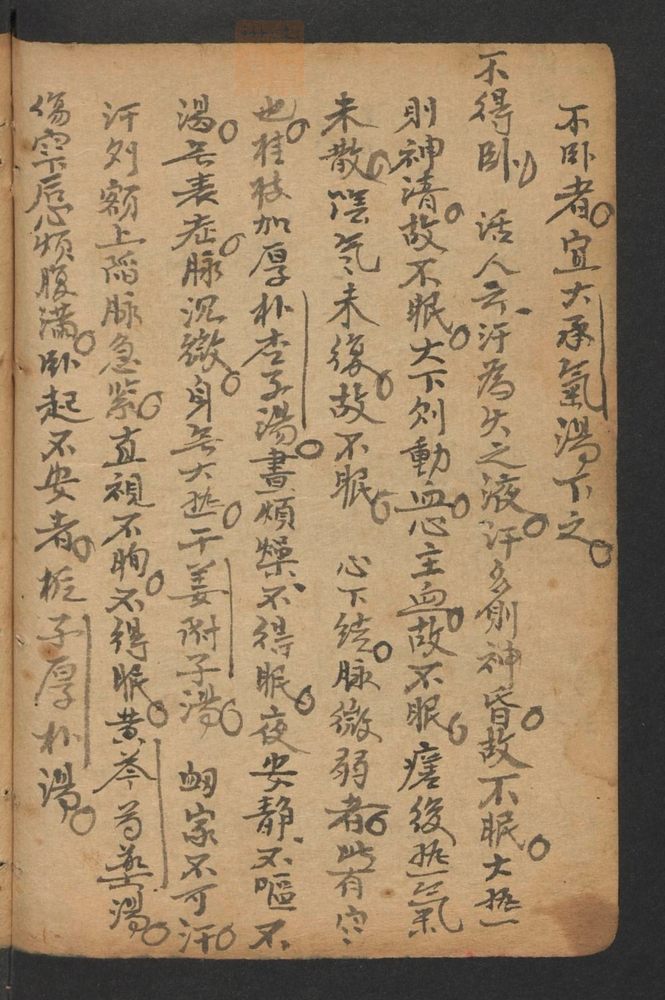 不卧者宜大承氣湯下之
不得卧 活人云汗為心之液汗多則神昏故不眠大热
則神清故不眠大下则動血心主血故不眠瘥後热氣
未散陰氣未復故不眠 心下结脉微弱者此有寒
也桂枝加厚朴杏子湯晝煩燥不得眠夜安静不嘔不
渴无表症脉沉微身无大热干姜附子湯 衄家不可汗
汗则額上陷脉急紧直視不眴不得眠黄芩芍藥湯
傷寒后心煩腹满卧起不安者栀子厚朴湯